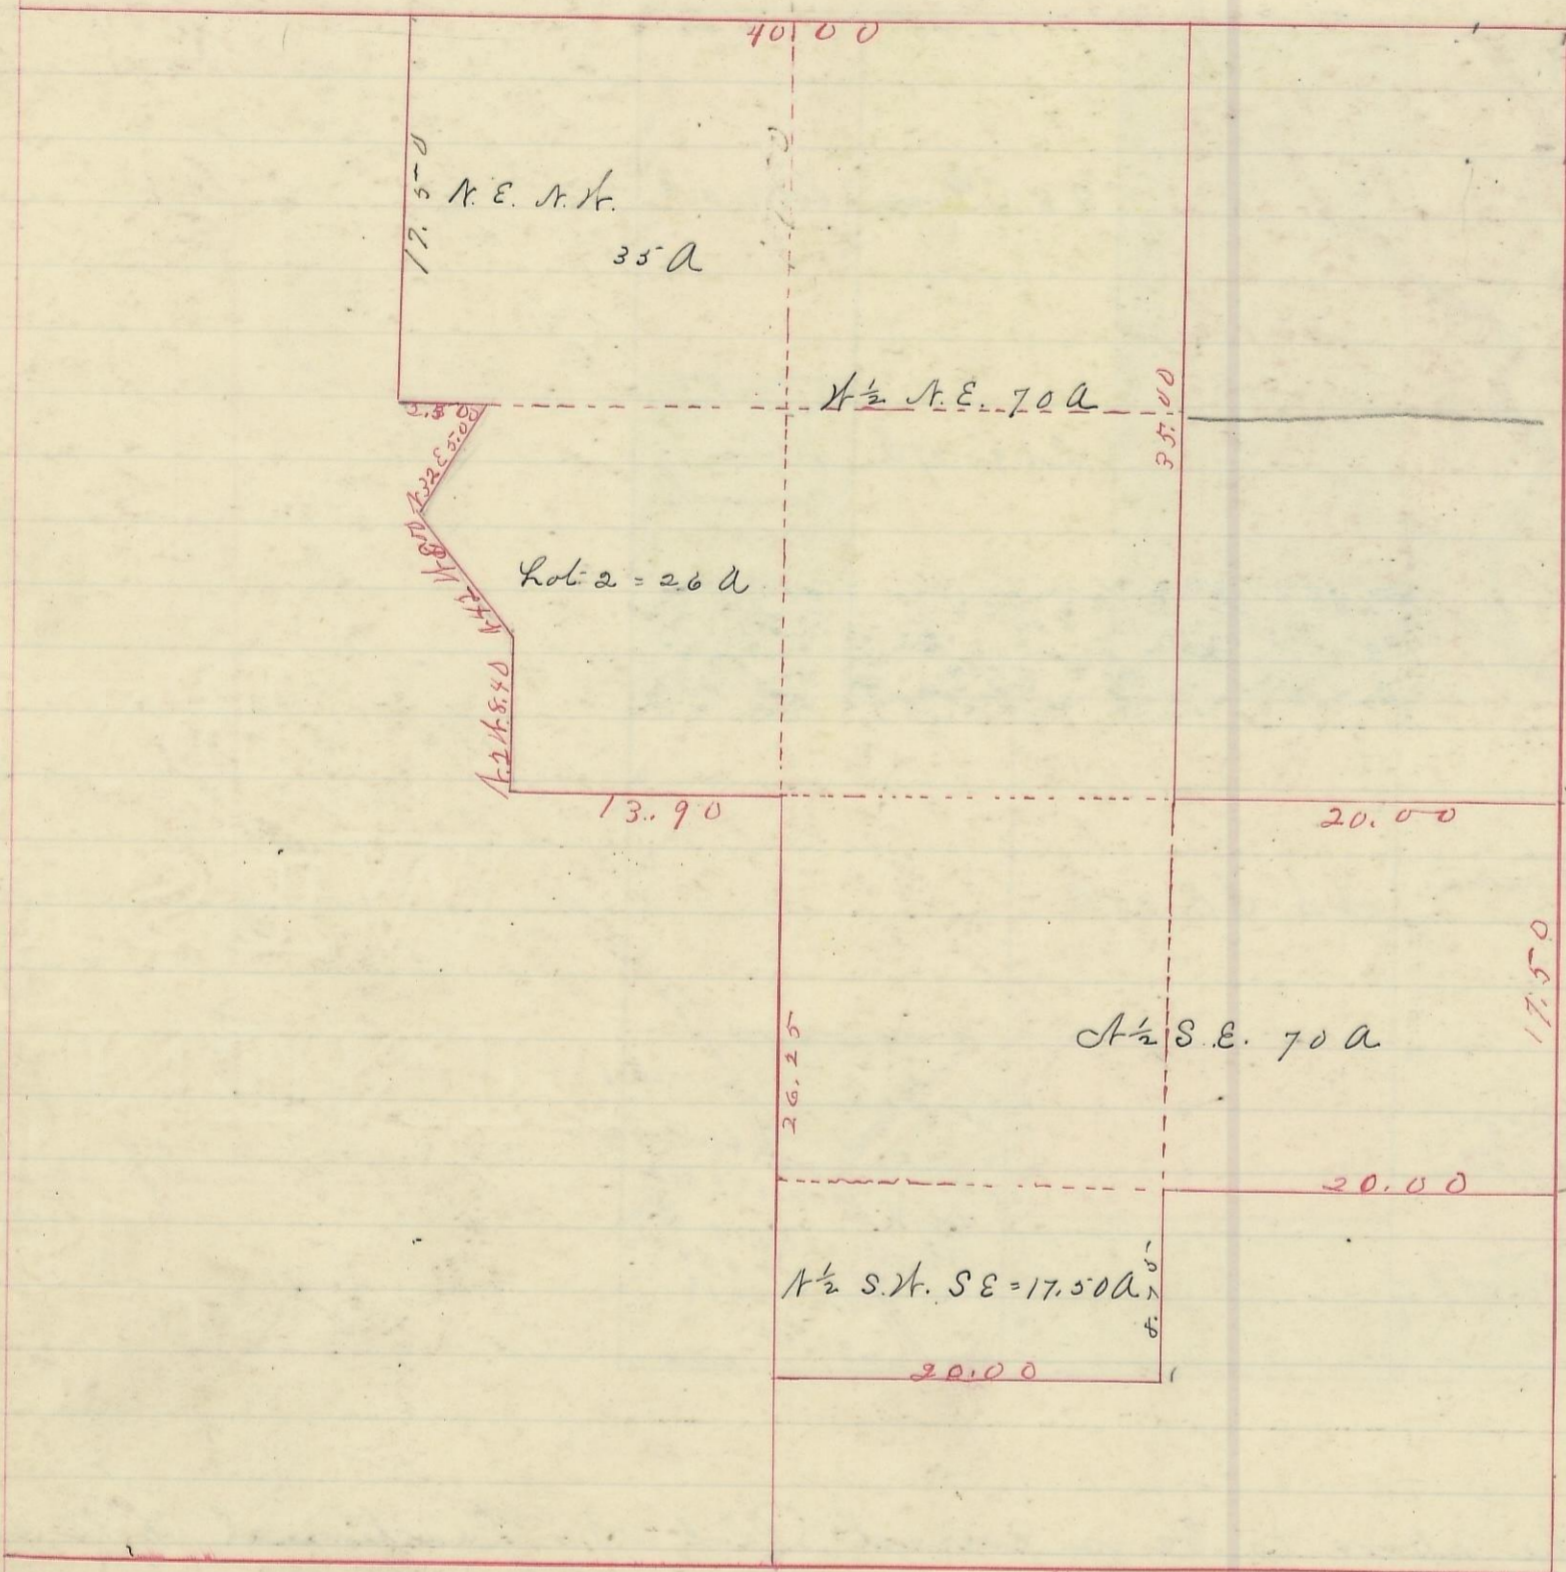 40.00
17.50
N.E. N.W.
35 A
W ½ N.E. 70 A
35.00
N 32 E 5.00
Lot 2 = 26 A
N 2 W. 8.40
13.90
20.00
17.50
26.25
N ½ S.E. 70 A
20.00
N ½ S.W. SE = 17.50 A
8.75
20.00